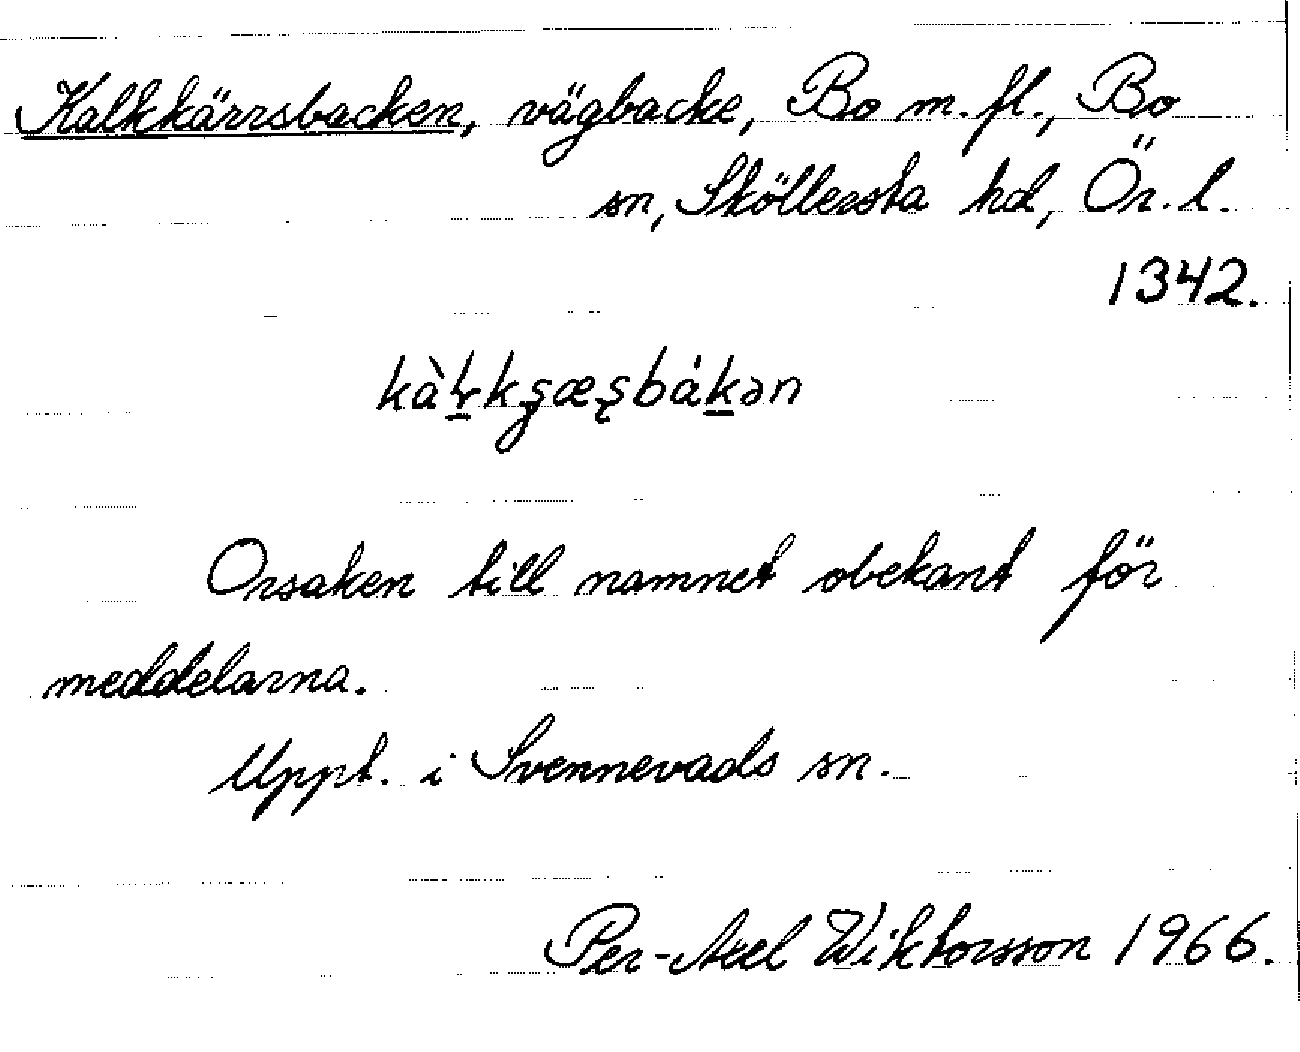 Kalkkärrsbacken, vägbacke, Bo m. fl., Bo
sn, Sköllersta hd, Ör. l.
1342.
Orsaken till namnet obekant för
meddelarna.
Uppt. i Svennevads sn.
Per-Axel Wiktorsson 1966.